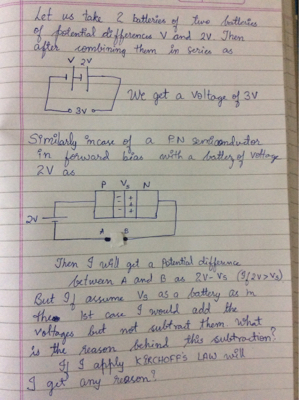 Let us take 2 batteries of two batteries
of potential differences V and 2V. Then
after combining them in series as
V 2V
We get a voltage of 3V
3V
Similarly incase of a PN semiconductor
in forward bias with a battery of voltage
2V as
P Vs N
- +
- +
- +
2V
A B
Then I will get a Potential difference
between A and B as 2V-Vs (if 2V>Vs)
But if I assume Vs as a battery as in
the 1st case I would add the
voltages but not subtract them what
is the reason behind this subtraction?
If I apply KIRCHOFF'S LAW will
I get any reason?